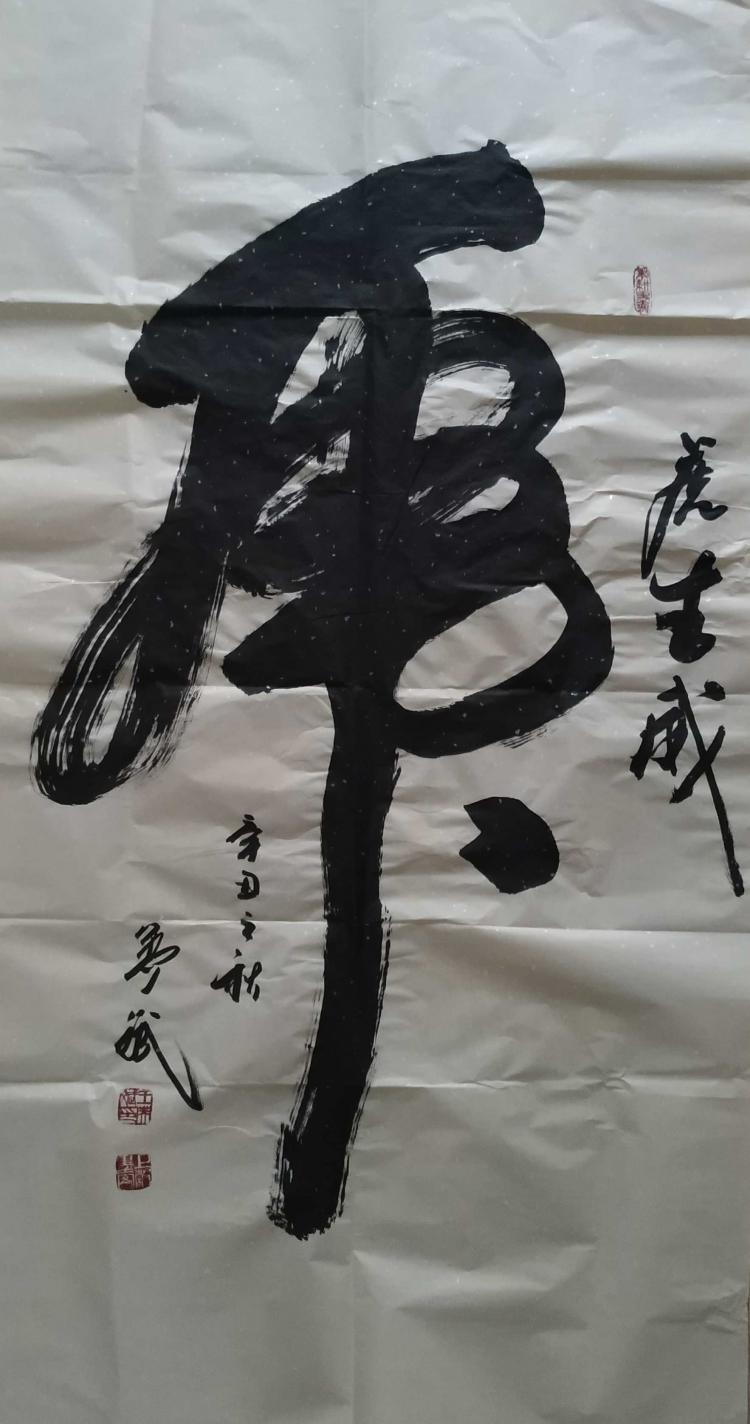 虎
虎生威
辛丑之秋
梦斌